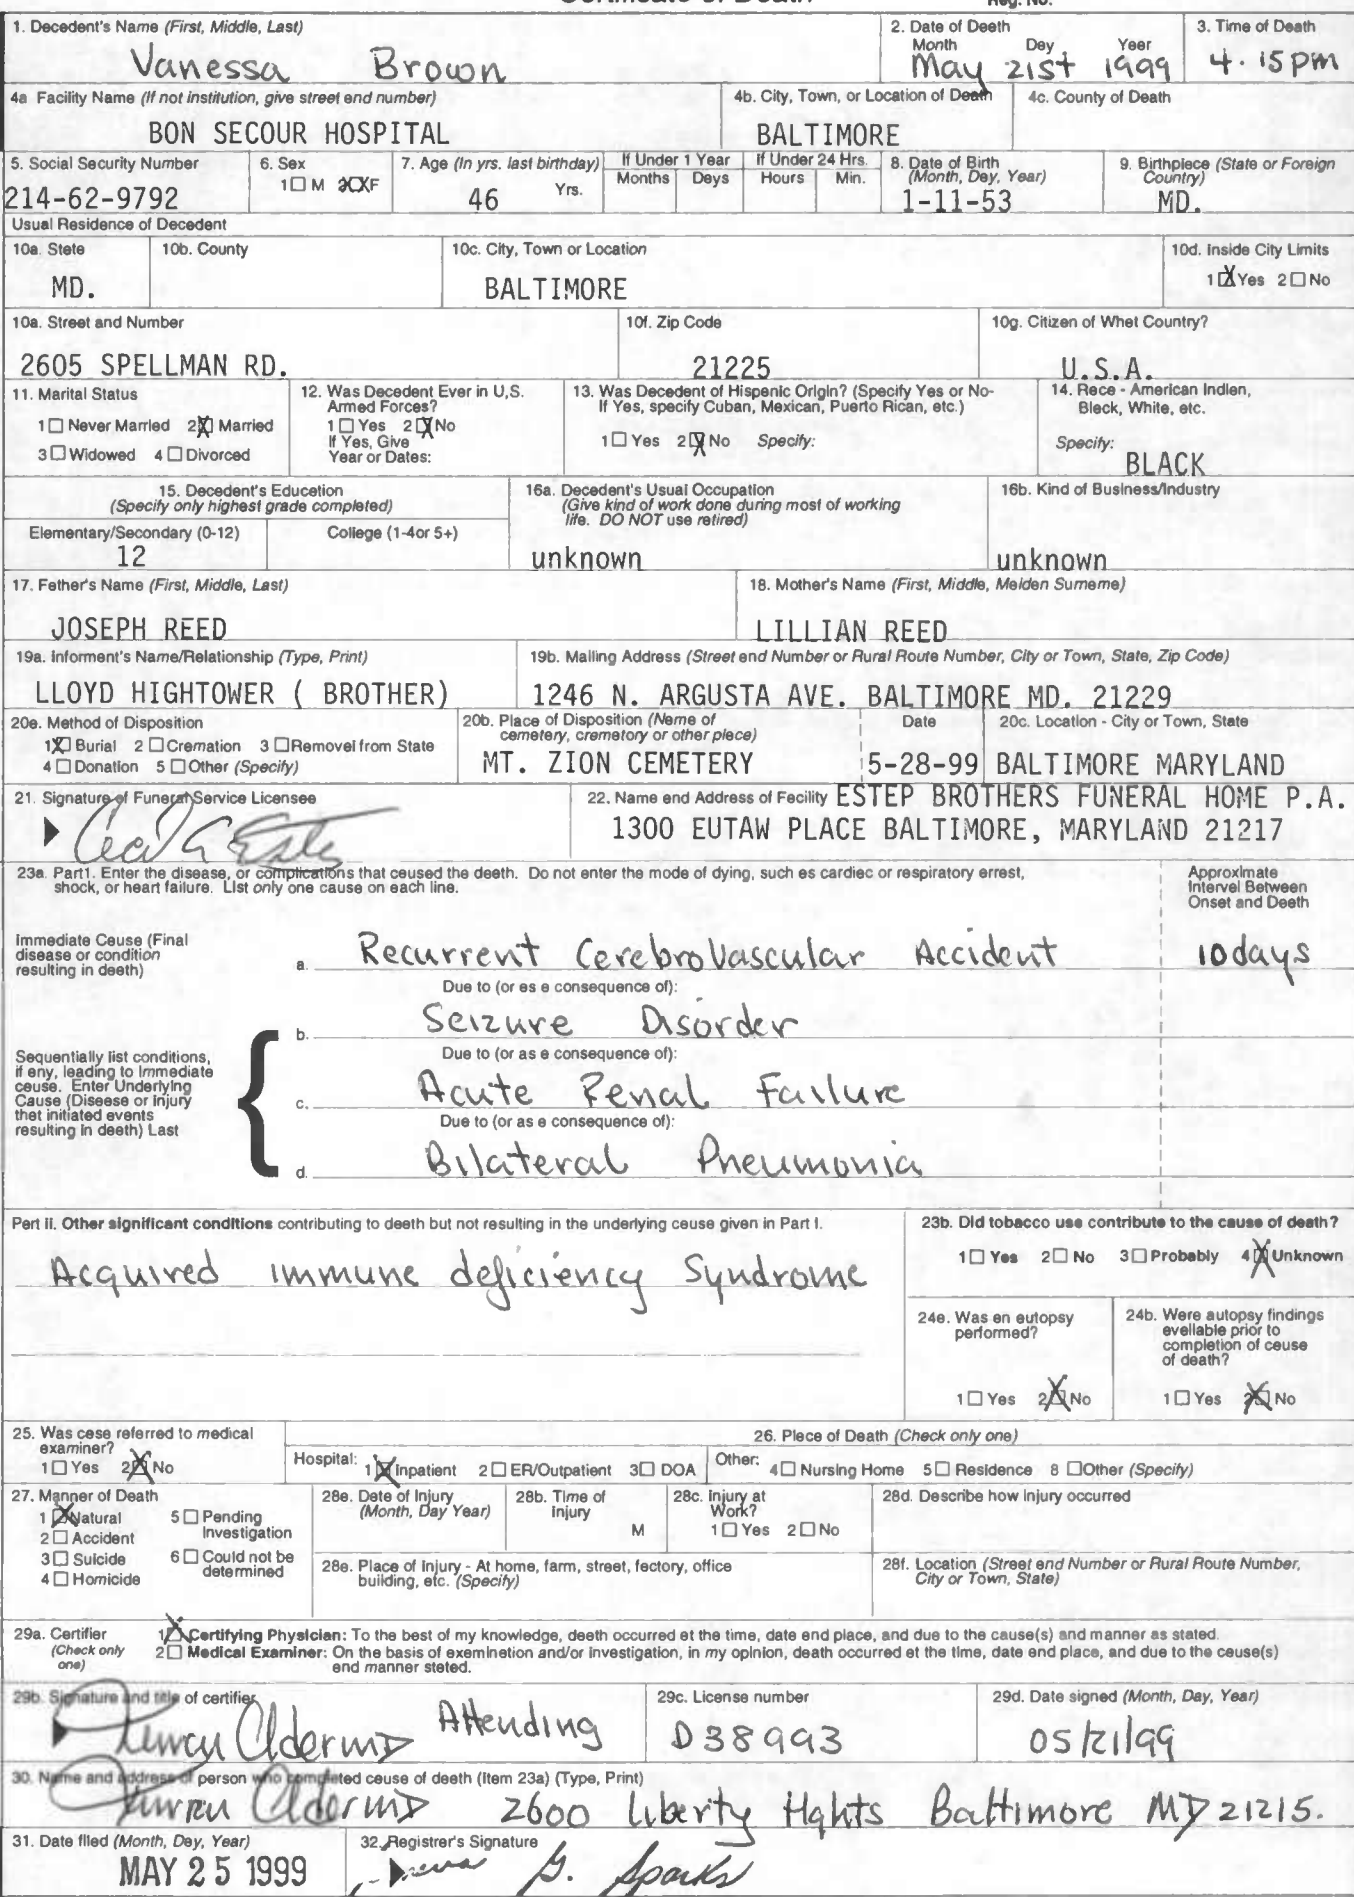 1. Decedent's Name (First, Middle, Last)
Vanessa Brown
2. Date of Deeth
Month Dey Yeer
May 21st 1999
3. Time of Death
4.15pm
4a Facility Name (If not institution, give street end number)
BON SECOUR HOSPITAL
4b. City, Town, or Location of Death
BALTIMORE
4c. County of Death
5. Social Security Number
214-62-9792
6. Sex
1☐ M XXF
7. Age (In yrs. last birthday)
46 Yrs.
If Under 1 Year
Months Deys
If Under 24 Hrs.
Hours Min.
8. Date of Birth
(Month, Day, Year)
1-11-53
9. Birthpiece (State or Foreign
Country)
MD.
Usual Residence of Decedent
10a. Stete
MD.
10b. County
10c. City, Town or Location
BALTIMORE
10d. Inside City Limits
1☒Yes 2☐No
10a. Street and Number
2605 SPELLMAN RD.
10f. Zip Code
21225
10g. Citizen of Whet Country?
U.S.A.
11. Marital Status
1☐ Never Married 2☒ Married
3☐Widowed 4☐Divorced
12. Was Decedent Ever in U,S.
Armed Forces?
1☐Yes 2☒No
If Yes, Give
Year or Dates:
13. Was Decedent of Hispenic Origin? (Specify Yes or No-
If Yes, specify Cuban, Mexican, Puerto Rican, etc.)
1☐Yes 2☒No Specify:
14. Rece - American Indlen,
Bleck, White, etc.
Specify:
BLACK
15. Decedent's Education
(Specify only highest grade completed)
Elementary/Secondary (0-12) College (1-4or 5+)
12
16a. Decedent's Usual Occupation
(Give kind of work done during most of working
life. DO NOT use retired)
unknown
16b. Kind of Business/Industry
unknown
17. Father's Name (First, Middle, Last)
JOSEPH REED
18. Mother's Name (First, Middle, Melden Sumeme)
LILLIAN REED
19a. Informent's Name/Relationship (Type, Print)
LLOYD HIGHTOWER ( BROTHER)
19b. Mailing Address (Street end Number or Rural Route Number, City or Town, State, Zip Code)
1246 N. ARGUSTA AVE. BALTIMORE MD. 21229
20e. Method of Disposition
1☒ Burial 2☐Cremation 3☐Removel from State
4☐Donation 5☐Other (Specify)
20b. Place of Disposition (Neme of
cemetery, cremetory or other piece)
MT. ZION CEMETERY
Date
5-28-99
20c. Location - City or Town, State
BALTIMORE MARYLAND
21. Signature of Funeral Service Licensee
22. Name end Address of Fecility ESTEP BROTHERS FUNERAL HOME P.A.
1300 EUTAW PLACE BALTIMORE, MARYLAND 21217
23a. Part1. Enter the disease, or complications that ceused the deeth. Do not enter the mode of dying, such es cardiec or respiratory errest,
shock, or heart failure. List only one cause on each line.
Approximate
Intervel Between
Onset and Deeth
Immediate Ceuse (Final
disease or condition
resulting in death)
a. Recurrent Cerebrovascular Accident 10days
Due to (or es e consequence of):
b. Seizure Disorder
Due to (or as e consequence of):
Sequentially list conditions,
if eny, leading to Immediate
ceuse. Enter Underlying
Cause (Diseese or Injury
thet initiated events
resulting In death) Last
c. Acute Renal Failure
Due to (or as e consequence of):
d. Bilateral Pneumonia
Pert Ii. Other significant conditions contributing to deeth but not resulting in the underlying ceuse given in Part I.
Acquired immune deficiency Syndrome
23b. Did tobacco use contribute to the cause of death?
1☐Yes 2☐No 3☐Probably 4☒Unknown
24e. Was en eutopsy
performed?
1☐Yes 2☒No
24b. Were autopsy findings
evellable prior to
completion of ceuse
of death?
1☐Yes 2☒No
25. Was cese referred to medical
exeminer?
1☐Yes 2☒No
26. Plece of Death (Check only one)
Hospital: 1☒Inpatient 2☐ER/Outpatient 3☐DOA Other: 4☐Nursing Home 5☐Residence 8☐Other (Specify)
27. Manner of Death
1☒Natural
2☐Accident
3☐Suicide
4☐Homicide
5☐Pending
Investigation
6☐Could not be
determined
28e. Date of Injury
(Month, Day Year)
28b. Time of
Injury
M
28c. Injury at
Work?
1☐Yes 2☐No
28d. Describe how Injury occurred
28e. Place of Injury - At home, farm, street, fectory, office
building, etc. (Specify)
28f. Location (Street end Number or Rural Route Number,
City or Town, State)
29a. Certifier
(Check only
one)
1☒Certifying Physician: To the best of my knowledge, deeth occurred et the time, date end place, and due to the cause(s) and manner as stated.
2☐Medical Examiner: On the basis of exeminetion and/or investigation, in my opinion, death occurred et the time, date end place, and due to the ceuse(s)
end manner steted.
29b. Signature and title of certifier
Attending
29c. License number
D38993
29d. Date signed (Month, Day, Year)
05/21/99
30. Name and address of person who completed ceuse of deeth (Item 23a) (Type, Print)
2600 Liberty Hghts Baltimore MD 21215.
31. Date filed (Month, Dey, Year)
MAY 25 1999
32. Registrer's Signature
G. Sparks